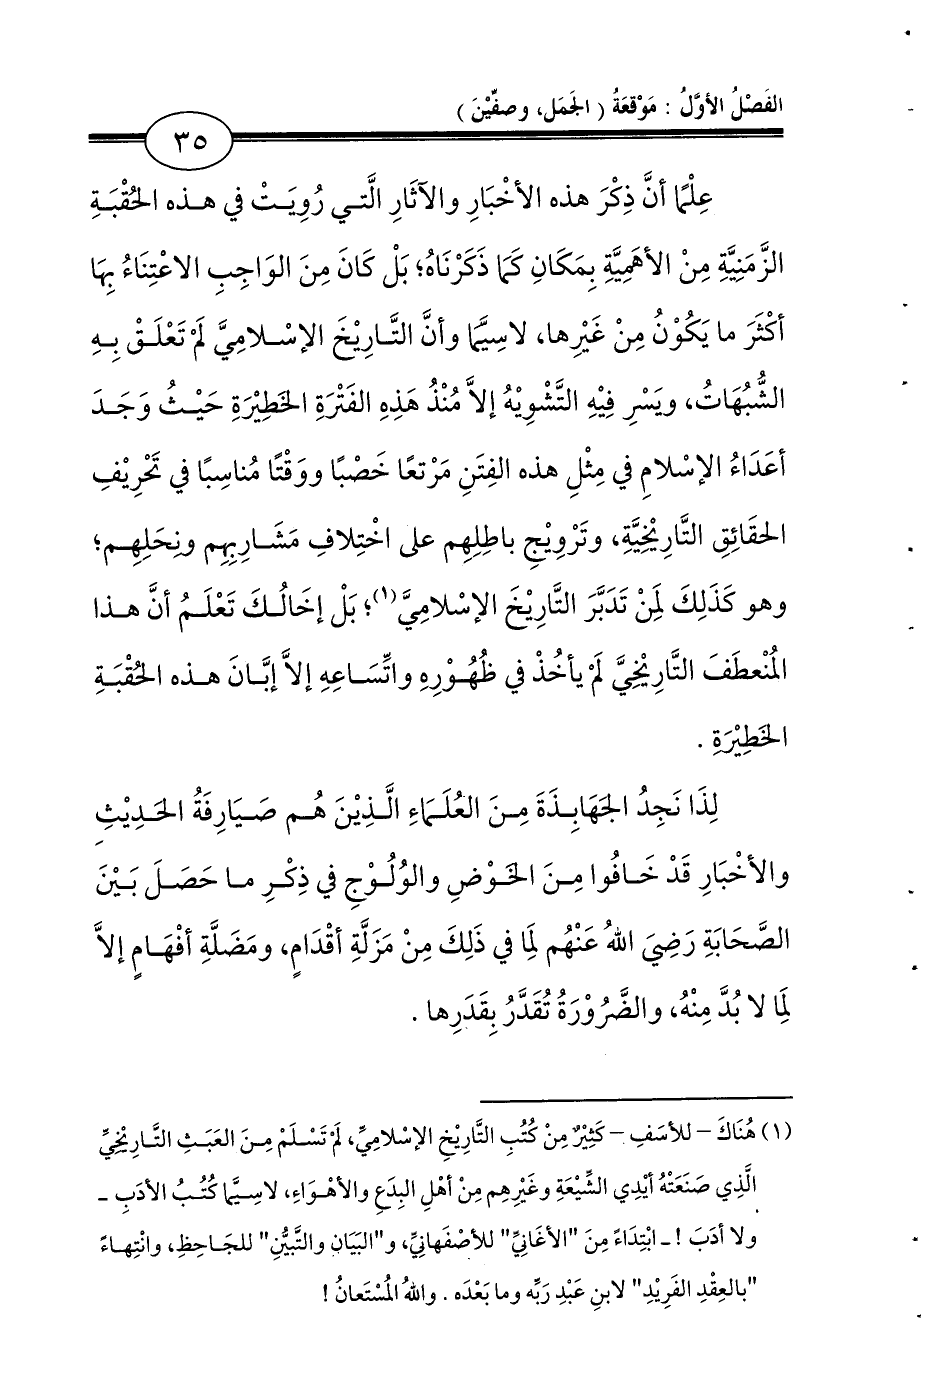 الفَصْلُ الأوَّلُ : مَوْقعَةُ ( الجَمَل، وصفِّيْنَ )
٣٥
عِلْمًا أنَّ ذِكْرَ هذه الأخْبَارِ والآثَارِ الَّتي رُوِيَتْ في هذه الحُقْبَةِ
الزَّمَنِيَّةِ مِنْ الأهَمِيَّةِ بِمَكَانٍ كَمَا ذَكَرْنَاهُ؛ بَلْ كَانَ مِنَ الوَاجِبِ الاعْتِنَاءُ بِهَا
أكْثَرَ ما يَكُوْنُ مِنْ غَيْرِها، لاسِيَّمَا وأنَّ التَّارِيْخَ الإسْلامِيَّ لَمْ تَعْلَقْ بِهِ
الشُّبُهَاتُ، ويَسْرِ فِيْهِ التَّشْوِيْهُ إلاَّ مُنْذُ هَذِهِ الفَتْرَةِ الخَطِيْرَةِ حَيْثُ وَجَدَ
أعَدَاءُ الإسْلامِ في مِثْلِ هذه الفِتَنِ مَرْتعًا خَصْبًا ووَقْتًا مُناسِبًا في تَحْرِيْفِ
الحَقَائِقِ التَّارِيْخِيَّةِ، وتَرْوِيْجِ باطِلِهِم على اخْتِلافِ مَشَارِبِهِم ونِحَلِهِم؛
وهو كَذَلِكَ لِمَنْ تَدَبَّرَ التَّارِيْخَ الإسْلامِيَّ(١)؛ بَلْ إخَالُكَ تَعْلَمُ أنَّ هذا
المُنْعطَفَ التَّارِيْخِيَّ لَمْ يأخُذْ في ظُهُوْرِهِ واتِّسَاعِهِ إلاَّ إبَّانَ هذه الحُقْبَةِ
الخَطِيْرَةِ .
لِذَا نَجِدُ الجَهَابِذَةَ مِنَ العُلَمَاءِ الَّذِيْنَ هُم صَيَارِفَةُ الحَدِيْثِ
والأخْبَارِ قَدْ خَافُوا مِنَ الخَوْضِ والوُلُوْجِ في ذِكْرِ ما حَصَلَ بَيْنَ
الصَّحَابَةِ رَضِيَ اللهُ عَنْهُم لِمَا في ذَلِكَ مِنْ مَزَلَّةِ أقْدَامٍ، ومَضَلَّةِ أفْهَامٍ إلاَّ
لِمَا لا بُدَّ مِنْهُ، والضَّرُوْرَةُ تُقَدَّرُ بِقَدَرِها .
(١) هُنَاكَ - للأسَفِ - كَثِيْرٌ مِنْ كُتُبِ التَّارِيْخِ الإسْلامِيِّ، لَمْ تَسْلَمْ مِنَ العَبَثِ التَّارِيْخِيِّ
الَّذِي صَنَعَتْهُ أيْدِي الشِّيْعَةِ وغَيْرِهِم مِنْ أهْلِ البِدَعِ والأهْوَاءِ، لاسِيَّمَا كُتُبُ الأدَبِ ـ
ولا أدَبَ ! ـ ابْتِدَاءً مِنَ "الأغَانِيِّ" للأصْفَهانِيِّ، و"البَيَانِ والتَّبيُّنِ" للجَاحِظِ، وانْتِهاءً
"بالعِقْدِ الفَرِيْدِ" لابنِ عَبْدِ رَبِّه وما بَعْدَه . واللهُ المُسْتَعانُ !